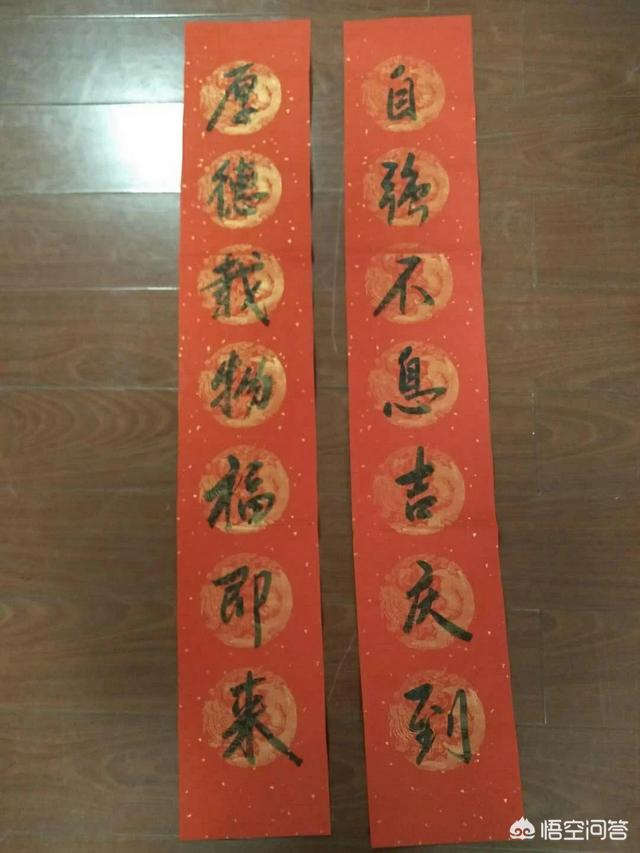 自強不息吉庆到
厚德载物福即来
悟空问答